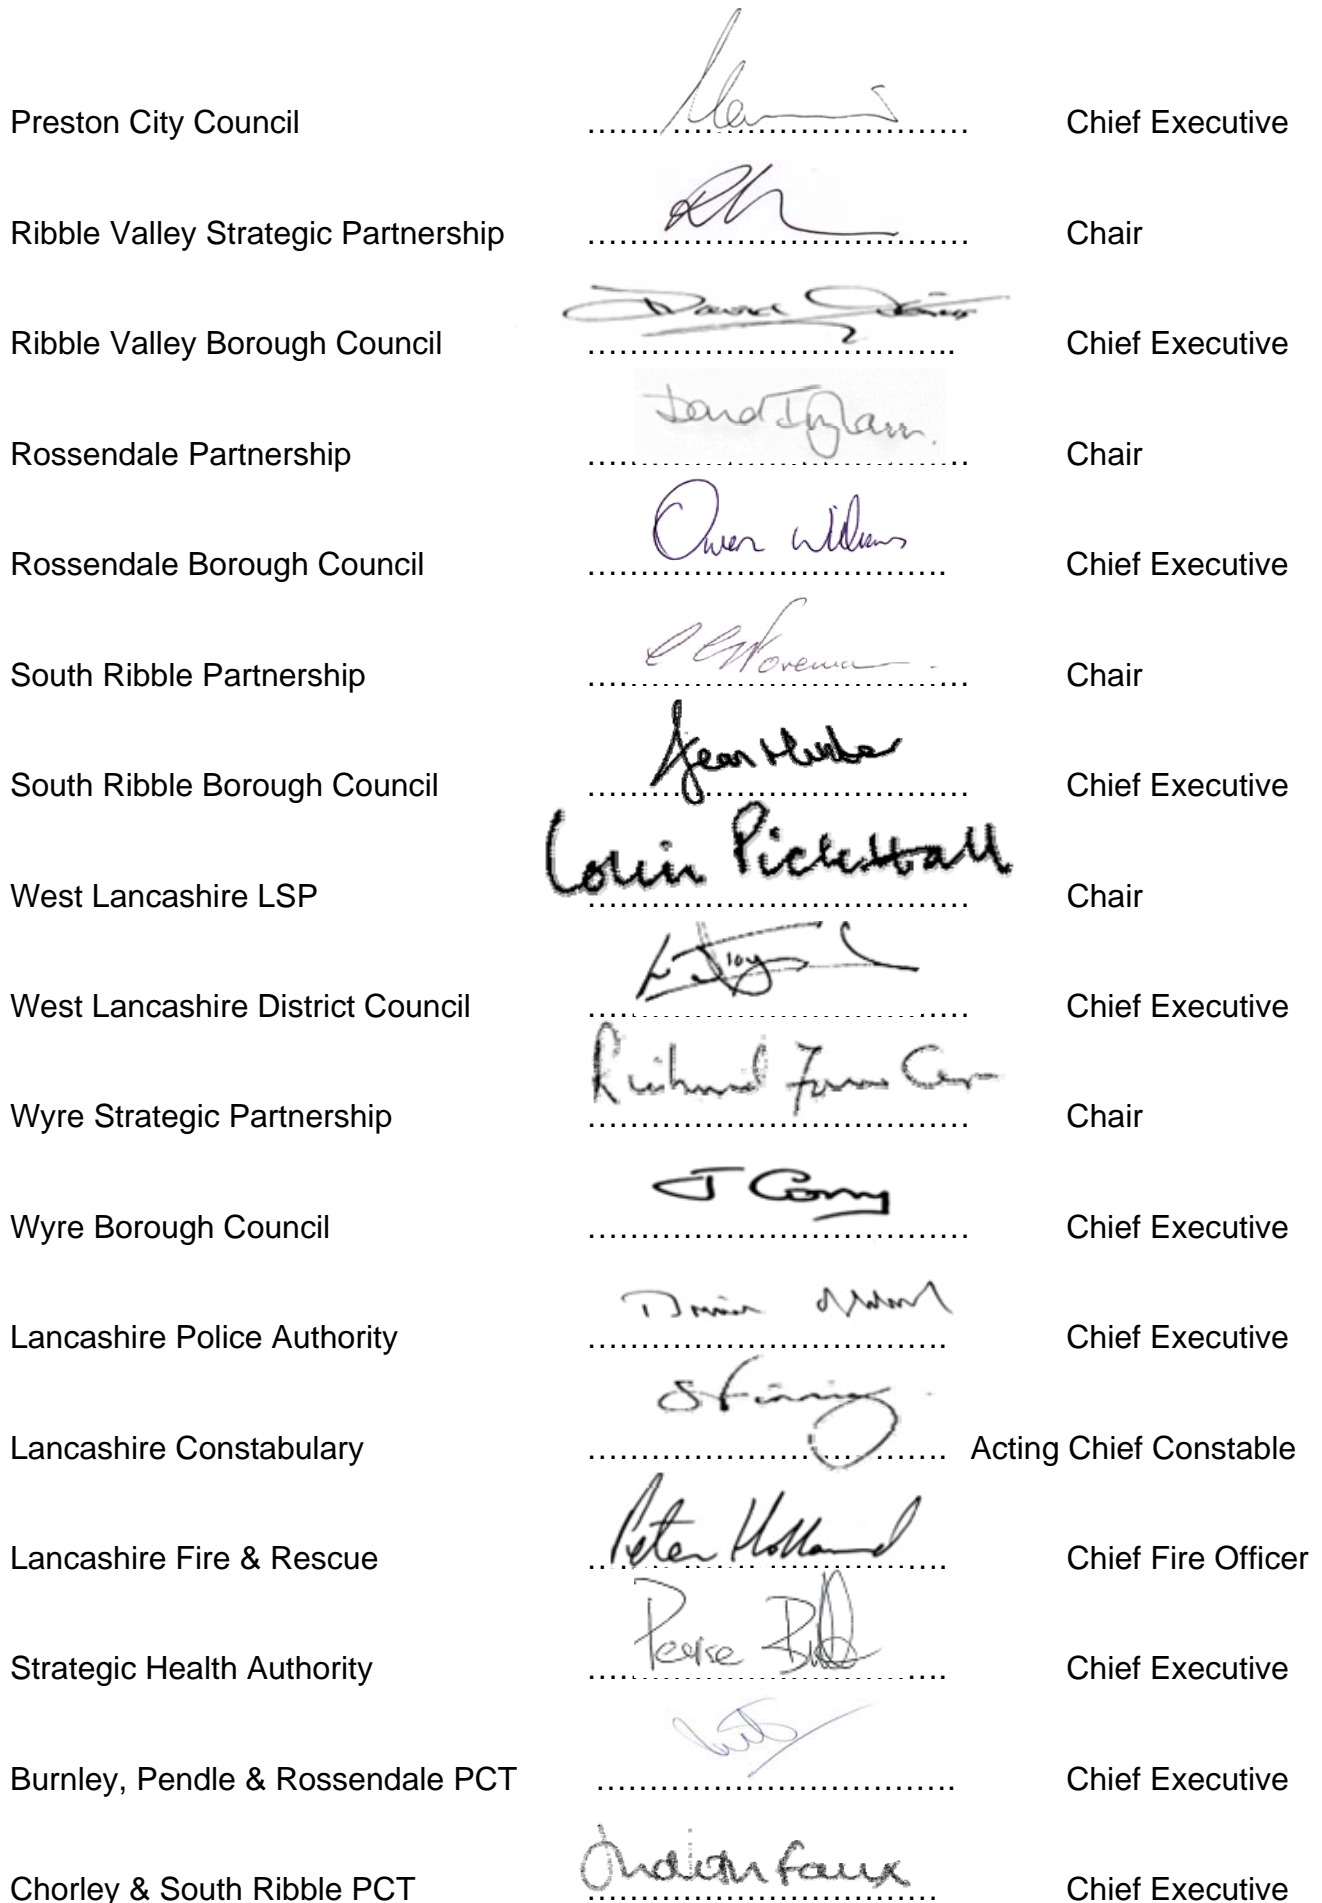 Preston City Council ………………………………… Chief Executive
Ribble Valley Strategic Partnership ……………………………… Chair
Ribble Valley Borough Council David …………………………….. Chief Executive
Rossendale Partnership David Ingham. ……………………………… Chair
Rossendale Borough Council Owen Williams ……………………………. Chief Executive
South Ribble Partnership ……………………………… Chair
South Ribble Borough Council Jean Hunter ……………………………… Chief Executive
West Lancashire LSP Colin Pickthall ……………………………… Chair
West Lancashire District Council ……………………………… Chief Executive
Wyre Strategic Partnership Richard ……………………………… Chair
Wyre Borough Council J Corry ……………………………… Chief Executive
Lancashire Police Authority ……………………………. Chief Executive
Lancashire Constabulary ……………………………. Acting Chief Constable
Lancashire Fire & Rescue Peter Holland ……………………………. Chief Fire Officer
Strategic Health Authority ……………………………. Chief Executive
Burnley, Pendle & Rossendale PCT ……………………………. Chief Executive
Chorley & South Ribble PCT Judith Faux ……………………………. Chief Executive